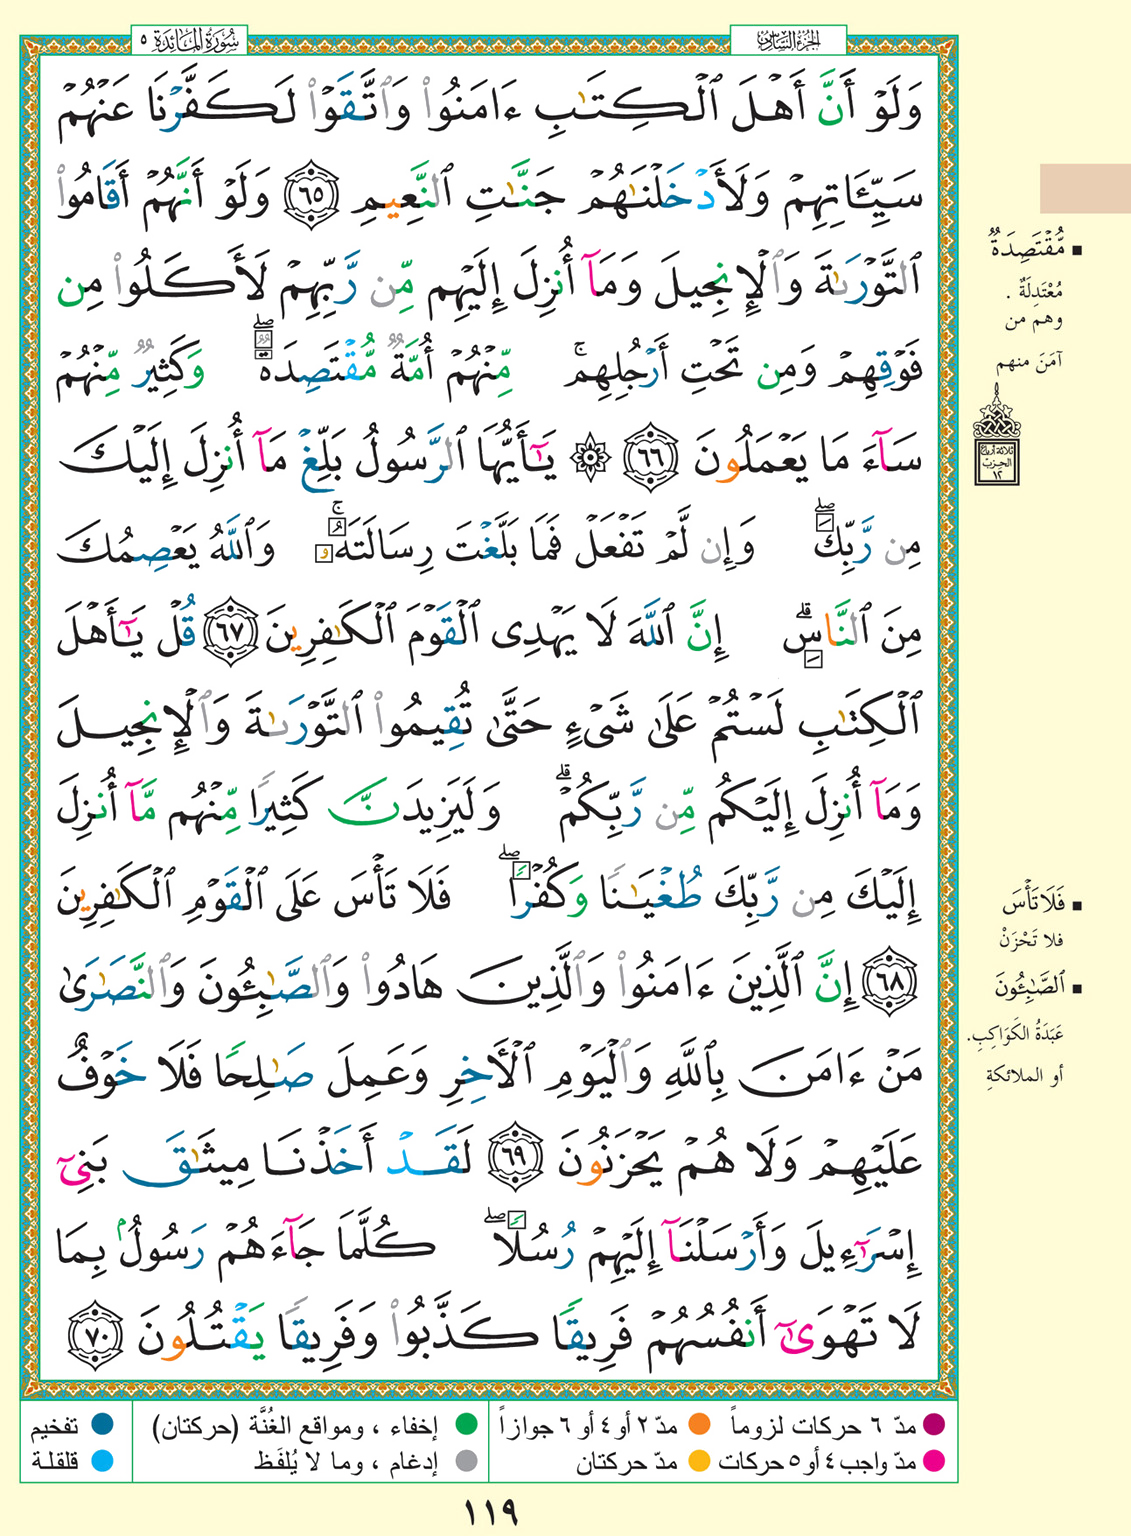 الجزء السادس
سُورَةُ المَائدَة ٥
وَلَوۡ أَنَّ أَهۡلَ ٱلۡكِتَٰبِ ءَامَنُواْ وَٱتَّقَوۡاْ لَكَفَّرۡنَا عَنۡهُمۡ
سَيِّـَٔاتِهِمۡ وَلَأَدۡخَلۡنَٰهُمۡ جَنَّٰتِ ٱلنَّعِيمِ ٦٥ وَلَوۡ أَنَّهُمۡ أَقَامُواْ
ٱلتَّوۡرَىٰةَ وَٱلۡإِنجِيلَ وَمَآ أُنزِلَ إِلَيۡهِم مِّن رَّبِّهِمۡ لَأَكَلُواْ مِن
فَوۡقِهِمۡ وَمِن تَحۡتِ أَرۡجُلِهِمۚ مِّنۡهُمۡ أُمَّةٞ مُّقۡتَصِدَةٞۖ وَكَثِيرٞ مِّنۡهُمۡ
سَآءَ مَا يَعۡمَلُونَ ٦٦ ۞ يَٰٓأَيُّهَا ٱلرَّسُولُ بَلِّغۡ مَآ أُنزِلَ إِلَيۡكَ
مِن رَّبِّكَۖ وَإِن لَّمۡ تَفۡعَلۡ فَمَا بَلَّغۡتَ رِسَالَتَهُۥۚ وَٱللَّهُ يَعۡصِمُكَ
مِنَ ٱلنَّاسِۗ إِنَّ ٱللَّهَ لَا يَهۡدِى ٱلۡقَوۡمَ ٱلۡكَٰفِرِينَ ٦٧ قُلۡ يَٰٓأَهۡلَ
ٱلۡكِتَٰبِ لَسۡتُمۡ عَلَىٰ شَىۡءٍ حَتَّىٰ تُقِيمُواْ ٱلتَّوۡرَىٰةَ وَٱلۡإِنجِيلَ
وَمَآ أُنزِلَ إِلَيۡكُم مِّن رَّبِّكُمۡۗ وَلَيَزِيدَنَّ كَثِيرٗا مِّنۡهُم مَّآ أُنزِلَ
إِلَيۡكَ مِن رَّبِّكَ طُغۡيَٰنٗا وَكُفۡرٗاۖ فَلَا تَأۡسَ عَلَى ٱلۡقَوۡمِ ٱلۡكَٰفِرِينَ
٦٨ إِنَّ ٱلَّذِينَ ءَامَنُواْ وَٱلَّذِينَ هَادُواْ وَٱلصَّٰبِـُٔونَ وَٱلنَّصَٰرَىٰ
مَنۡ ءَامَنَ بِٱللَّهِ وَٱلۡيَوۡمِ ٱلۡأٓخِرِ وَعَمِلَ صَٰلِحٗا فَلَا خَوۡفٌ
عَلَيۡهِمۡ وَلَا هُمۡ يَحۡزَنُونَ ٦٩ لَقَدۡ أَخَذۡنَا مِيثَٰقَ بَنِىٓ
إِسۡرَٰٓءِيلَ وَأَرۡسَلۡنَآ إِلَيۡهِمۡ رُسُلٗاۖ كُلَّمَا جَآءَهُمۡ رَسُولُۢ بِمَا
لَا تَهۡوَىٰٓ أَنفُسُهُمۡ فَرِيقٗا كَذَّبُواْ وَفَرِيقٗا يَقۡتُلُونَ ٧٠
مُّقۡتَصِدَةٞ
مُعْتَدِلَةٌ .
وهم من
آمَنَ منهم
ثلاثة أرباع
الحزب
١٢
فَلَا تَأۡسَ
فلا تَحْزَنْ
ٱلصَّٰبِـُٔونَ
عَبَدَةُ الكَوَاكِبِ.
أو الملائكةِ
مدّ ٦ حركات لزوماً
مدّ ٢ أو ٤ أو ٦ جوازاً
إخفاء ، ومواقع الغُنَّة (حركتان)
تفخيم
مدّ واجب ٤ أو ٥ حركات
مدّ حركتان
إدغام ، وما لا يُلفَظ
قلقلة
١١٩